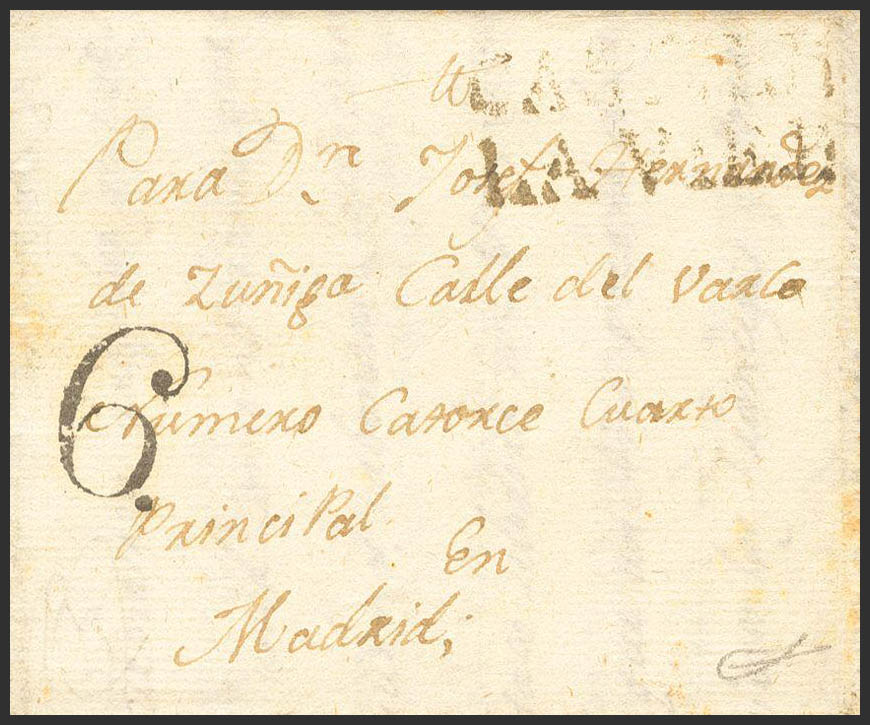 CASTILLA
LA VIEJA
Para Dⁿ Josef Hernandez
de Zuñiga Calle del Varco
6
Numero Catorce Cuarto
Principal
En
Madrid;